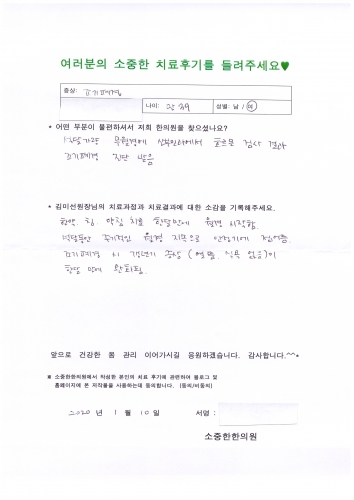 여러분의 소중한 치료후기를 들려주세요♥
증상: 조기폐경
나이: 만 39 성별: 남 / 여
* 어떤 부분이 불편하셔서 저희 한의원을 찾으셨나요?
무월경에 산부인과에서 호르몬 검사 결과
조기폐경 진단 받음
* 김미선원장님의 치료과정과 치료결과에 대한 소감을 기록해주세요.
한약, 침, 약침 치료 한달만에 월경 시작함.
주기적인 월경 지속으로 안정기에 접어듦.
조기폐경 시 갱년기 증상 (열감, 식욕 없음)이
한달 만에 완화됨.
앞으로 건강한 몸 관리 이어가시길 응원하겠습니다. 감사합니다.^^*
※ 소중한한의원에서 작성한 본인의 치료 후기에 관련하여 블로그 및
홈페이지에 본 저작물을 사용하는데 동의합니다. (동의/비동의)
2020 년 1 월 10 일 서명 :
소중한한의원